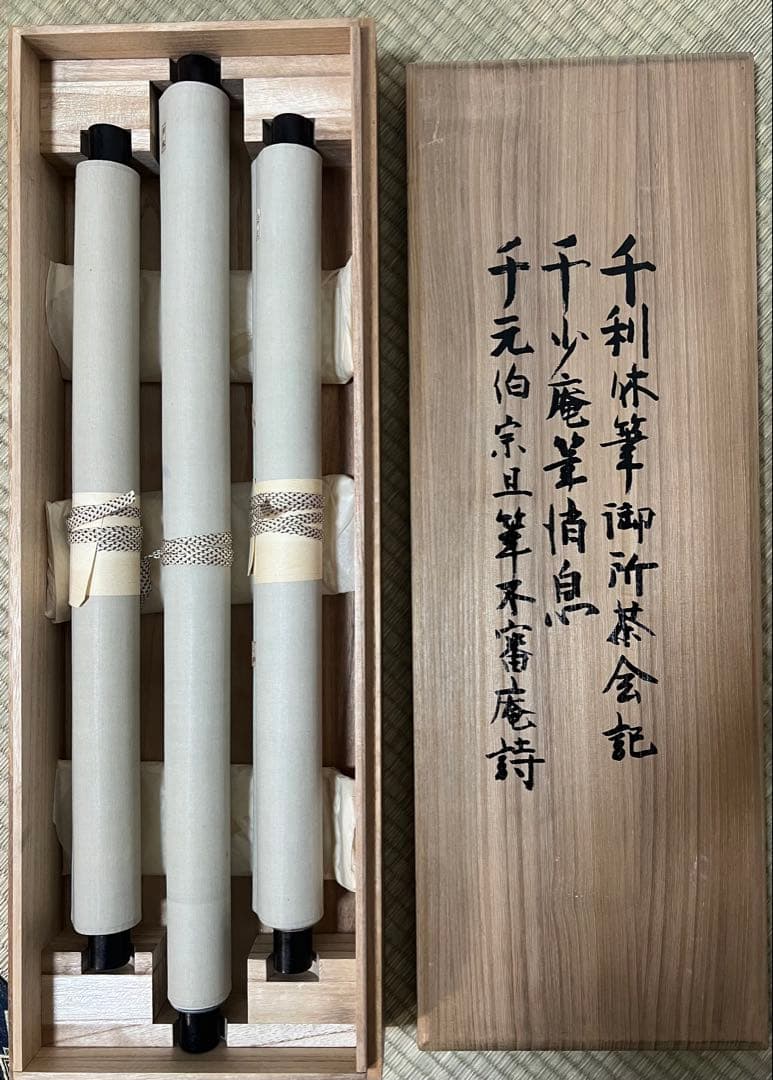 千利休筆御所茶会記
千少庵筆消息
千元伯宗旦筆不審庵詩